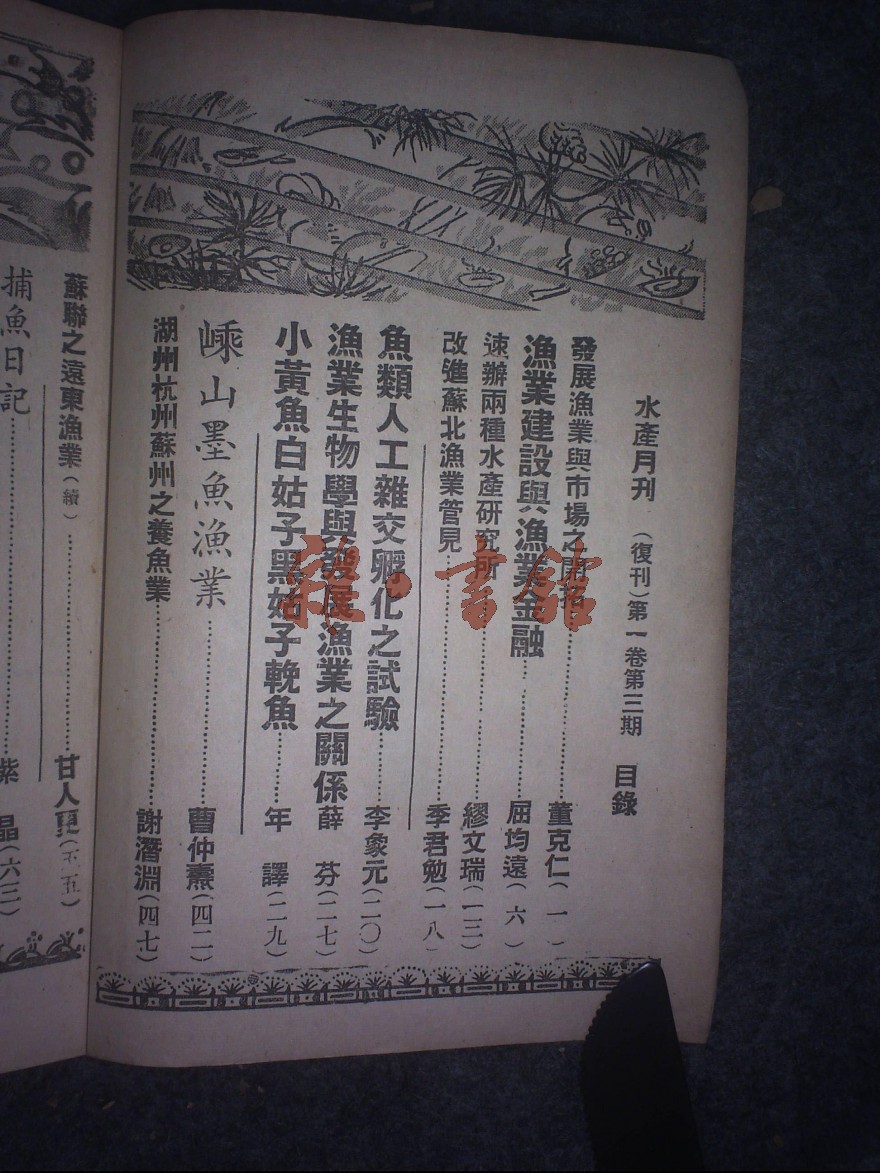 水產月刊 （復刊）第一卷第三期 目錄
發展漁業與市場之開拓⋯⋯董克仁（一）
漁業建設與漁業金融⋯⋯屈均遠（六）
速辦兩種水產研究所⋯⋯繆文瑞（一三）
改進蘇北漁業管見⋯⋯季君勉（一八）
魚類人工雜交孵化之試驗⋯⋯李象元（二〇）
漁業生物學與發展漁業之關係 薛 芬（二七）
小黃魚白姑子黑姑子鞔魚⋯⋯年 譯（二九）
嵊山墨魚漁業⋯⋯曹仲薰（四二）
湖州杭州蘇州之養魚業⋯⋯謝潛淵（四七）
蘇聯之遠東漁業（續）⋯⋯甘人更（五五）
捕魚日記⋯⋯紫 晶（六三）
書館